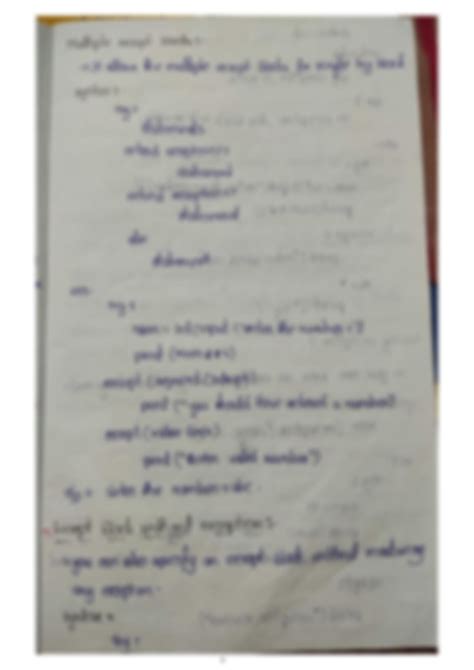 Multiple except blocks:-
→ It allows the multiple except blocks for single try block
syntax:-
try:
statements
except exception1:
statement
except exception2:
statement
else
statement
ex:-
try:
num = int(input("enter the number:"))
print (num**2)
except (Keyboard Interrupt):
print ("you should have entered a number")
except (value Error):
print ("Enter valid number")
o/p = enter the number: abc
Except block without exception:-
→ you can also specify an except block without mentioning
any exception.
syntax:-
try: